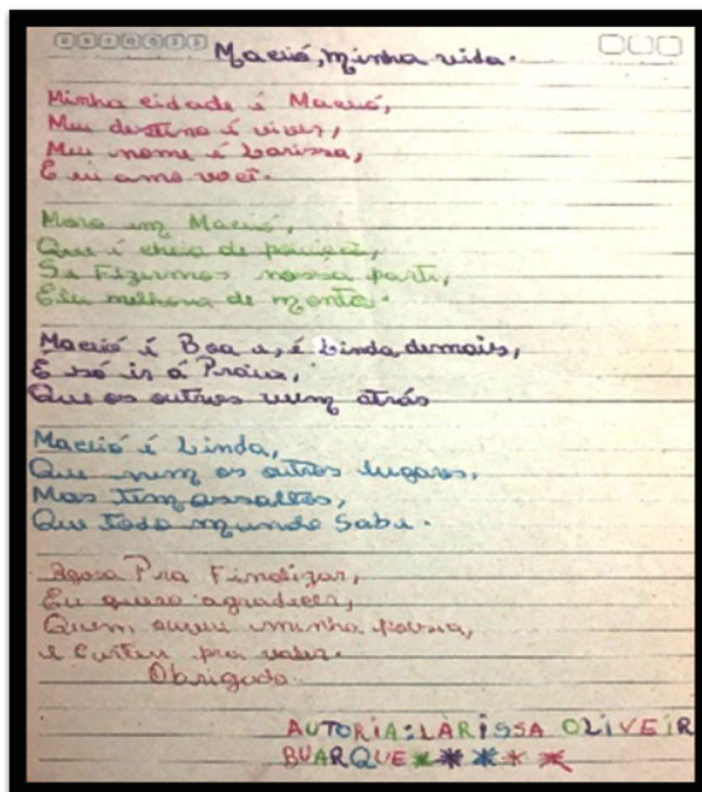 Maceió, minha vida.
Minha cidade é Maceió,
Meu destino é viver,
Meu nome é Larissa,
E eu amo você.
Moro em Maceió,
Que é cheia de
Se Fizermos nossa parte,
Ela melhora de monte.
Maceió é Boa e, é Linda demais,
É só ir á Praia,
Que os outros vem atrás
Maceió é Linda,
Que nem os outros lugares,
Mas Tem assaltos,
Que Todo mundo Sabe.
Agora Pra Finalizar,
Eu quero agradecer,
Quem ouviu minha poesia,
e Curtiu pra valer.
Obrigada.
AUTORIA: LARISSA OLIVEIR
BUARQUE